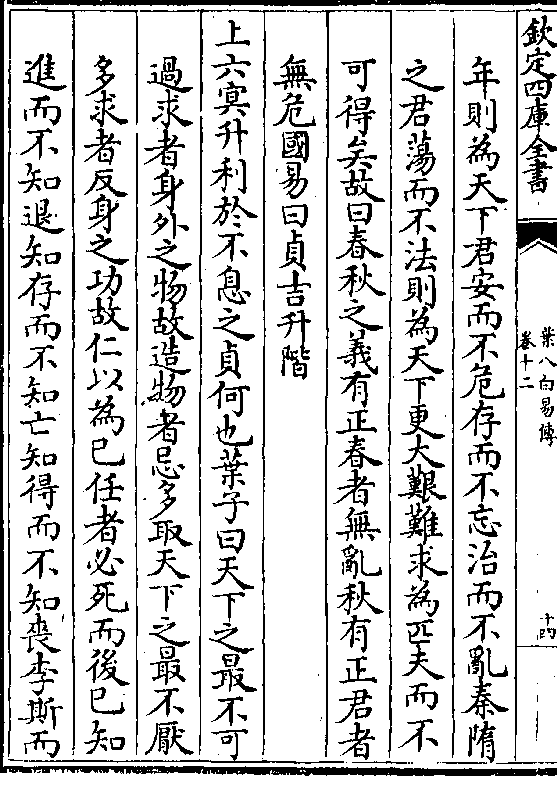 欽定四庫全書
葉八白易傳
卷十二
十四
年則為天下君安而不危存而不忘治而不亂秦隋
之君蕩而不法則為天下更大艱難求為匹夫而不
可得矣故曰春秋之義有正春者無亂秋有正君者
無危國易曰貞吉升階
上六㝠升利於不息之貞何也葉子曰天下之最不可
過求者身外之物故造物者忌多取天下之最不厭
多求者反身之功故仁以為已任者必死而後已知
進而不知退知存而不知亡知得而不知喪李斯而